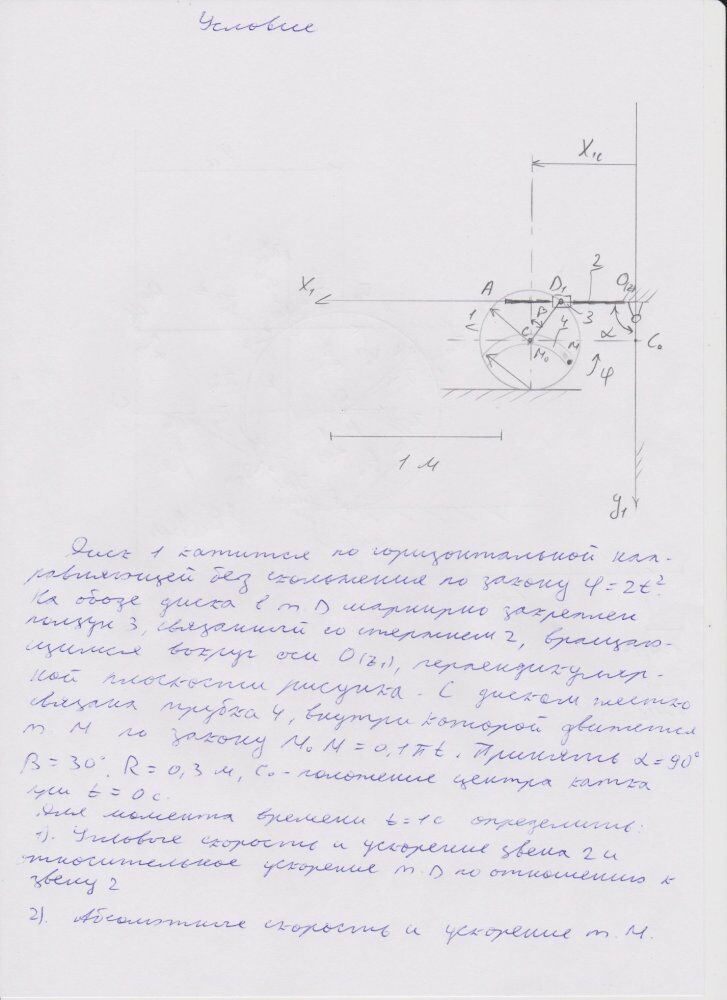 Условие
X₁c
2
O(z₁)
X₁
A
D₁
1
β
4
3
α
C
M₀
M
C₀
φ
1 м
y₁
Диск 1 катится по горизонтальной нап-
равляющей без скольжения по закону φ=2t².
На ободе диска в т D шарнирно закреплен
ползун 3, связанный со стержнем 2, вращаю-
щимся вокруг оси O(z₁), перпендикуляр-
ной плоскости рисунка. С диском жестко
связана трубка 4, внутри которой движется
т. М по закону M₀M = 0,1πt. Принять α=90°
β=30°. R=0,3 м, C₀-положение центра катка
при t=0 с.
Для момента времени t=1с определить:
1). Угловые скорость и ускорение звена 2 и
относительное ускорение т. D по отношению к
звену 2
2). Абсолютные скорость и ускорение т. М.